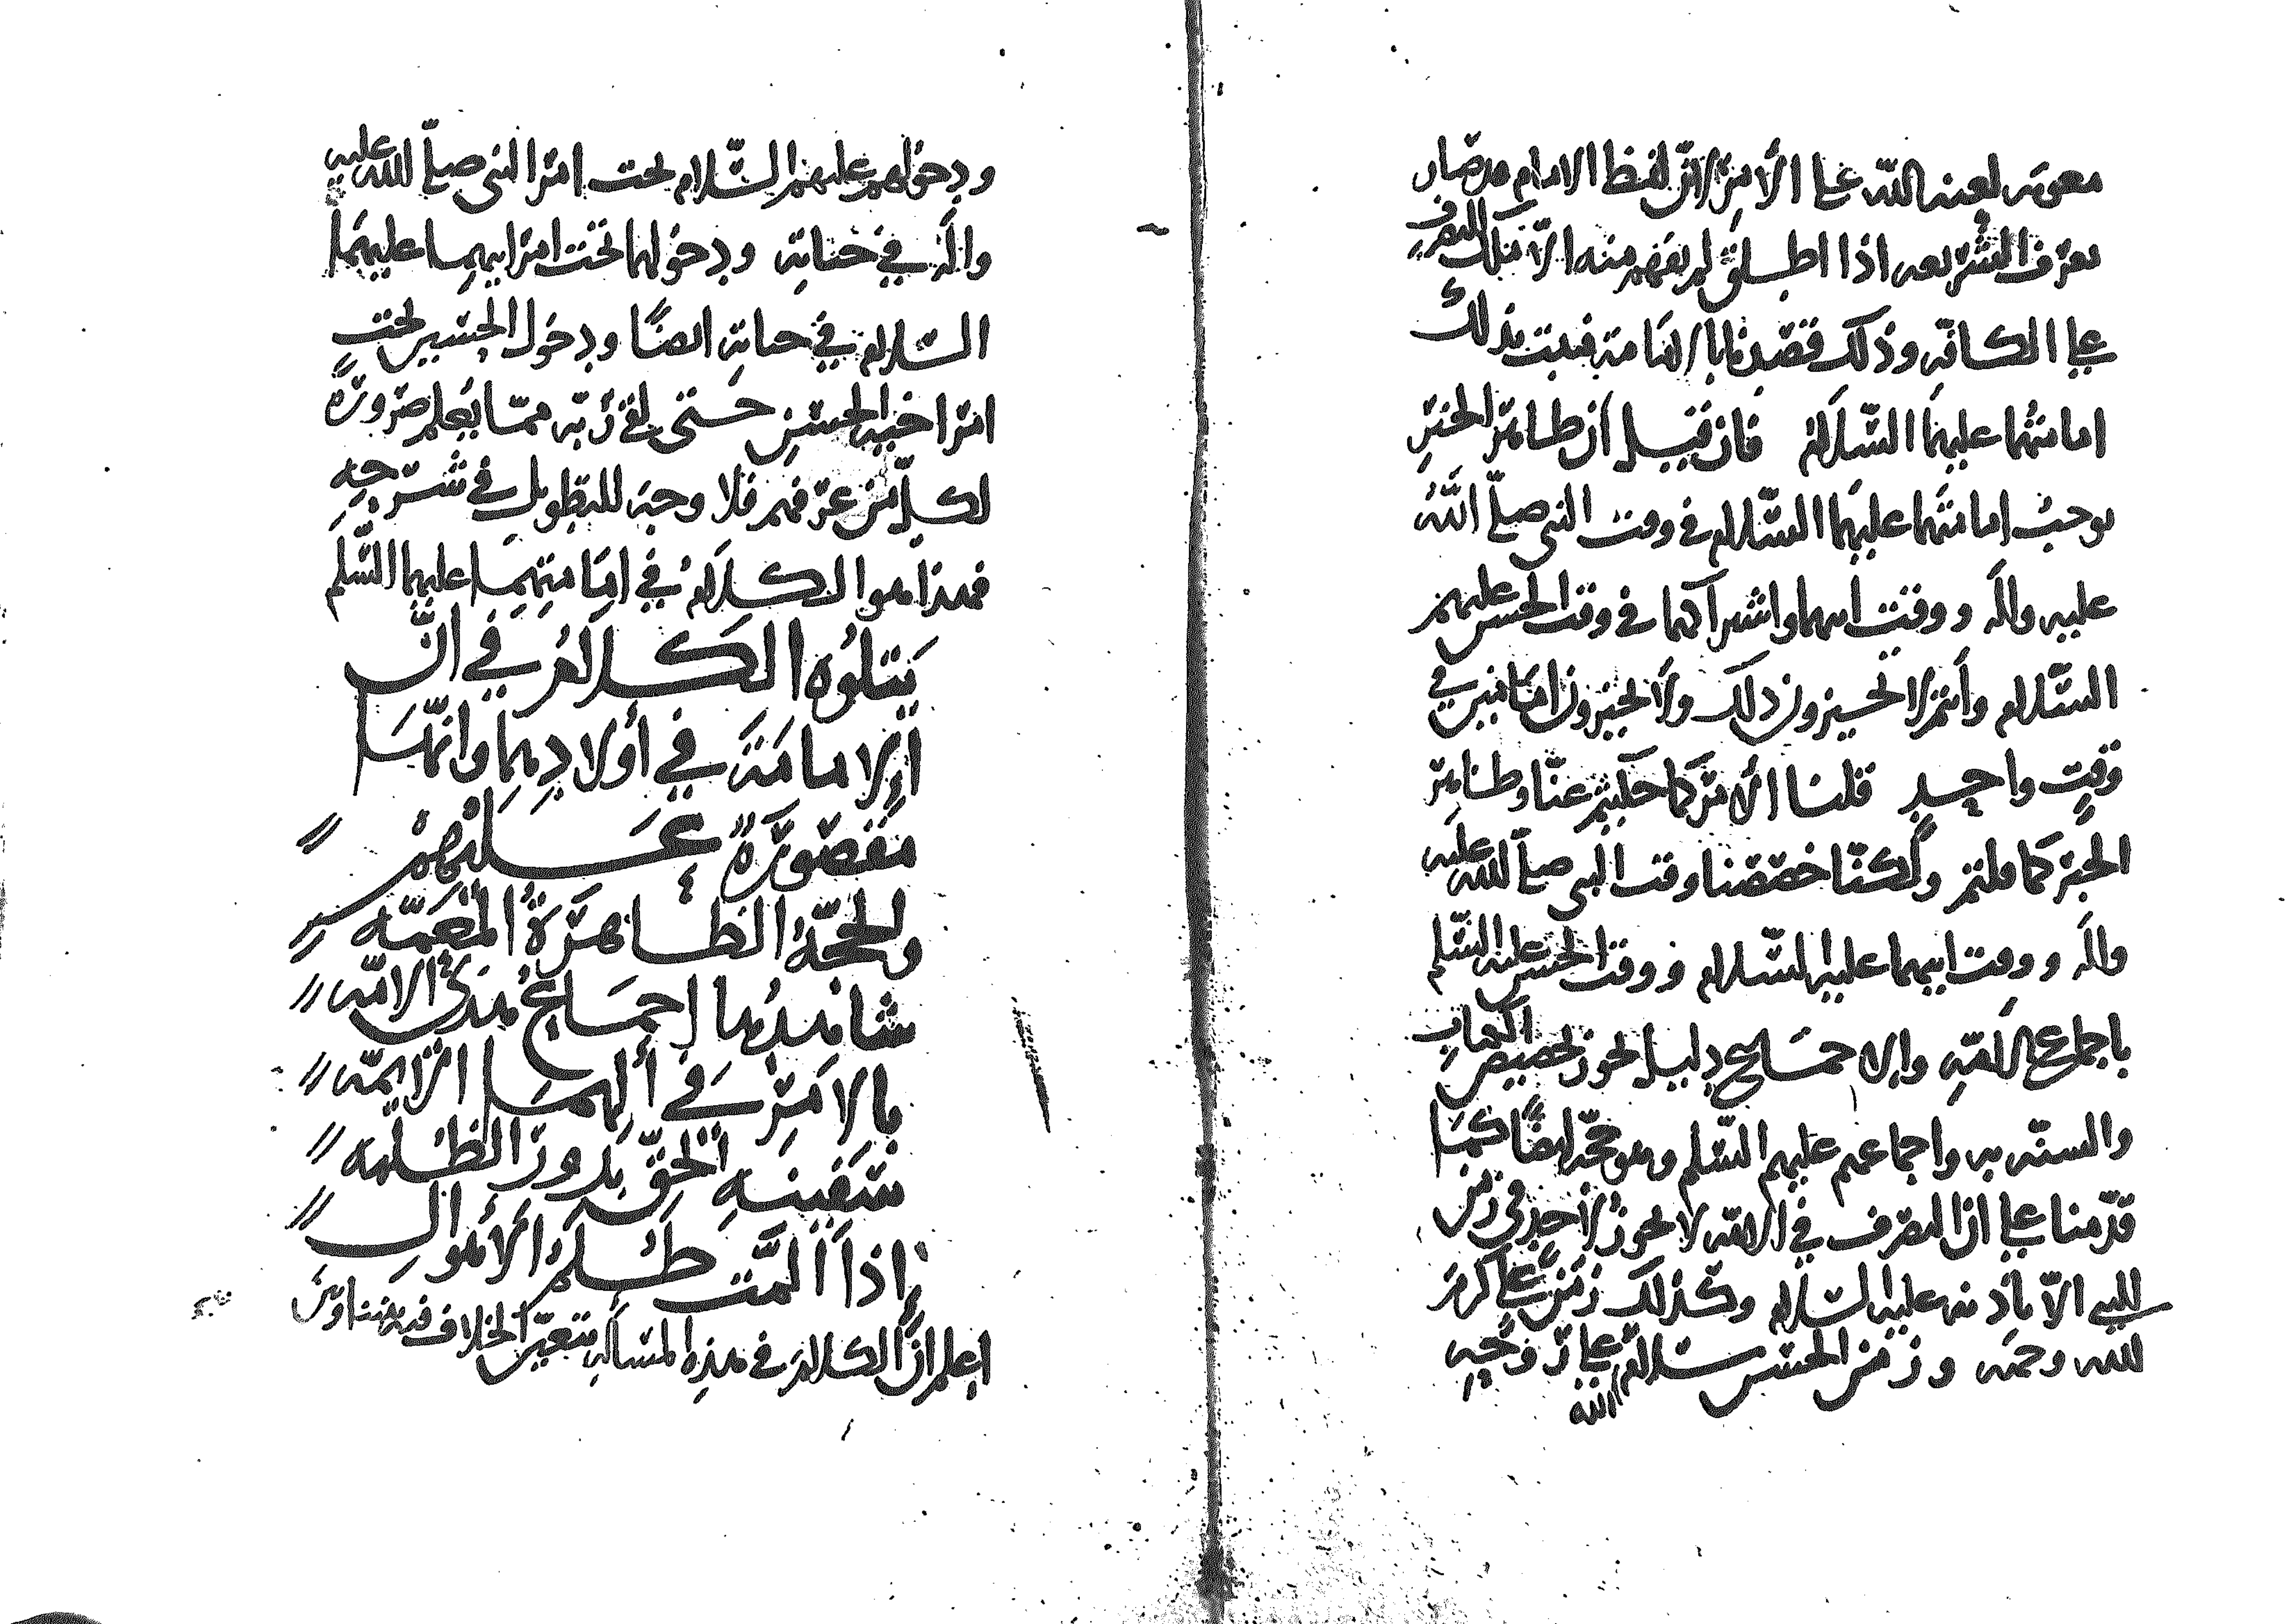 معويه لعنه الله على الأمة لأن لفظ الامام قد صار
بعرف الشريعه اذا اطلق لم يفهم منه الا مالك التصرف
على الكافه وذلك قصدنا بالامامة فثبت بذلك
امامتهما عليهما السلام فان قيل ان ظاهر الخبر
يوجب امامتهما عليهما السلام في وقت النبي صلى الله
عليه واله ووقت ابيهما واشتراكهما في وقت الحسن عليهم
السلام وأنتم لا تجيزون ذلك ولا تجيزون امامين في
وقت واحد قلنا الأمر كما حكيتم عنا وظاهر
الخبر كما قلتم ولكنا خصصنا وقت النبي صلى الله عليه
واله ووقت ابيهما عليه السلام ووقت الحسن عليه السلم
باجماع الأمة والاجماع دليل يجوز تخصيص الكتاب
والسنه به واجماعهم عليهم السلم وهو حجة ايضا كما
قدمنا على ان التصرف في الامه لا يجوز لأحد في زمن
النبي الا باذنه عليه السلام وكذلك زمن علي كرم
الله وجهه وزمن الحسن سلام الله على روحه
ودخولهم عليهم السلام تحت امر النبي صلى الله عليه
واله في حياته ودخولهما تحت امر ابيهما عليهما
السلام في حياته ايضا ودخول الحسين تحت
امر اخيه الحسن حتى لقي ربه مما يعلم ضرورة
لكل من عرفهم فلا وجه للتطويل في شرحه
فهذا هو الكلام في امامتهما عليهما السلم
يتلوه الكلام في ان
الامامة في أولادهما وانها
مقصورة عليهم
والحجة الظاهرة المعمه
شاهدها اجماع هذي الامه
بالامر في آلهما الأيمه
سفينه الحق بدور الظلمه
اذا المت ظلم الأهوال
اعلم ان الكلام في هذه المسألة يتعين الخلاف فيه بيننا وبين